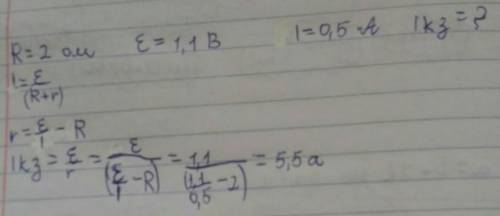 R=2 ом ε=1,1 В I=0,5 А Iкз=?
I=ε/(R+r)
r=ε/I - R
Iкз=ε/r=ε/(ε/I - R)=1,1/(1,1/0,5 - 2)=5,5а